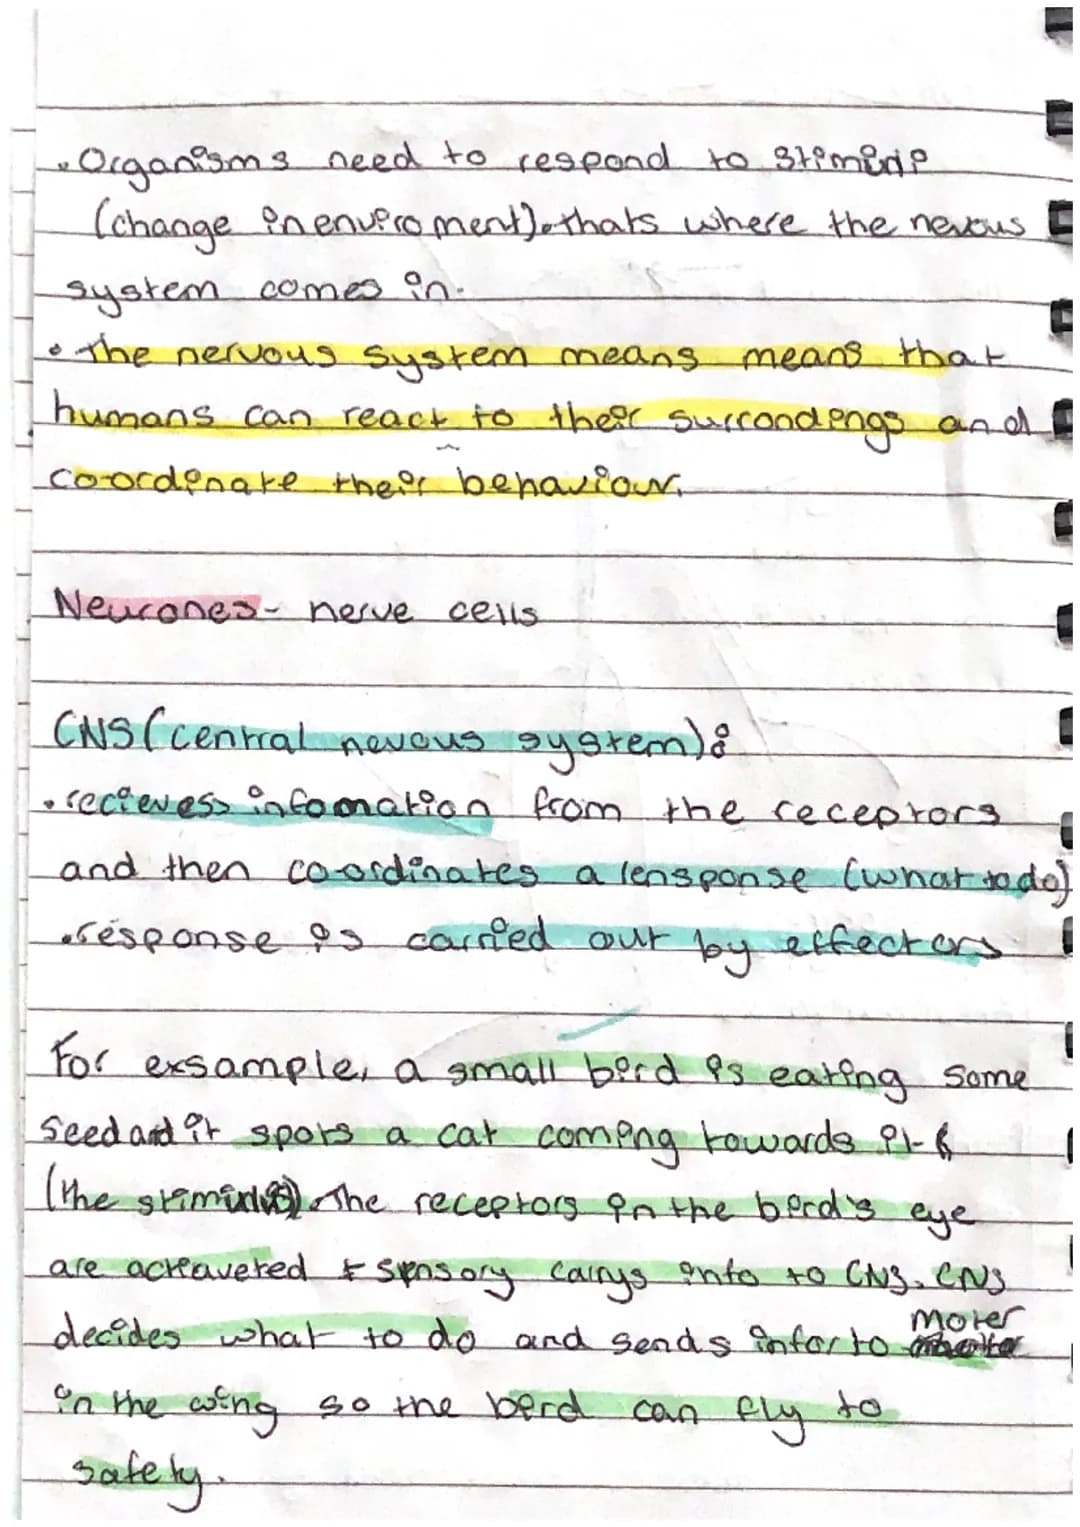 • Organisms need to respond to stimuli
(change in enviroment). thats where the nevous
system comes in.
• The nervous system means means that
humans can react to their surrondings and
co-ordinate their behaviour.
Neurones - nerve cells
CNS (central nevous system):
• recieves infomation from the receptors
and then co-ordinates a rensponse (what to do)
• response is carried out by effectors
For exsample, a small bird is eating some
seed and it spots a cat coming towards it
(the stimulus). The receptors in the bird's eye
are actiaveted & sensory carrys info to CNS. CNS
decides what to do and sends infor to moter
in the wing so the bird can fly to
safety.